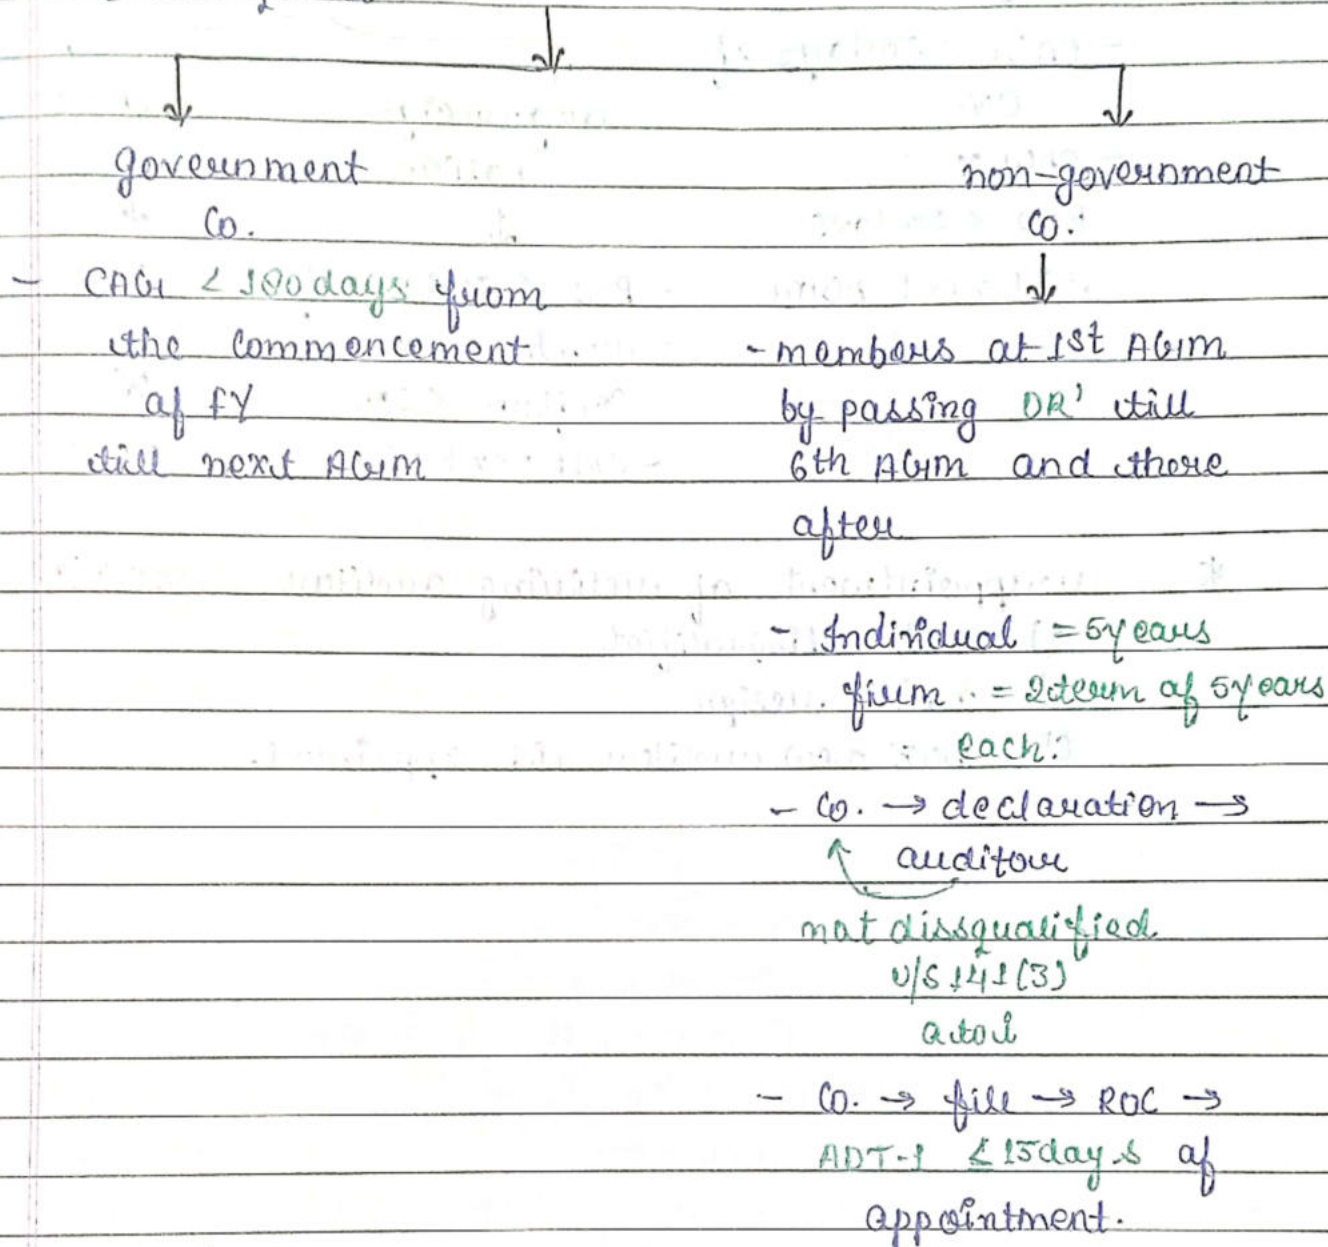 government
Co.
- CAG < 180 days from
the commencement
of FY
till next AGM
non-government
Co.
- members at 1st AGM
by passing OR' till
6th AGM and there
after
- Individual = 5years
firm = 2 term of 5years
each.
- Co. → declaration →
auditor
not dissqualified
U/S 141(3)
a to i
- Co. → file → ROC →
ADT-1 ≤ 15days of
appointment.